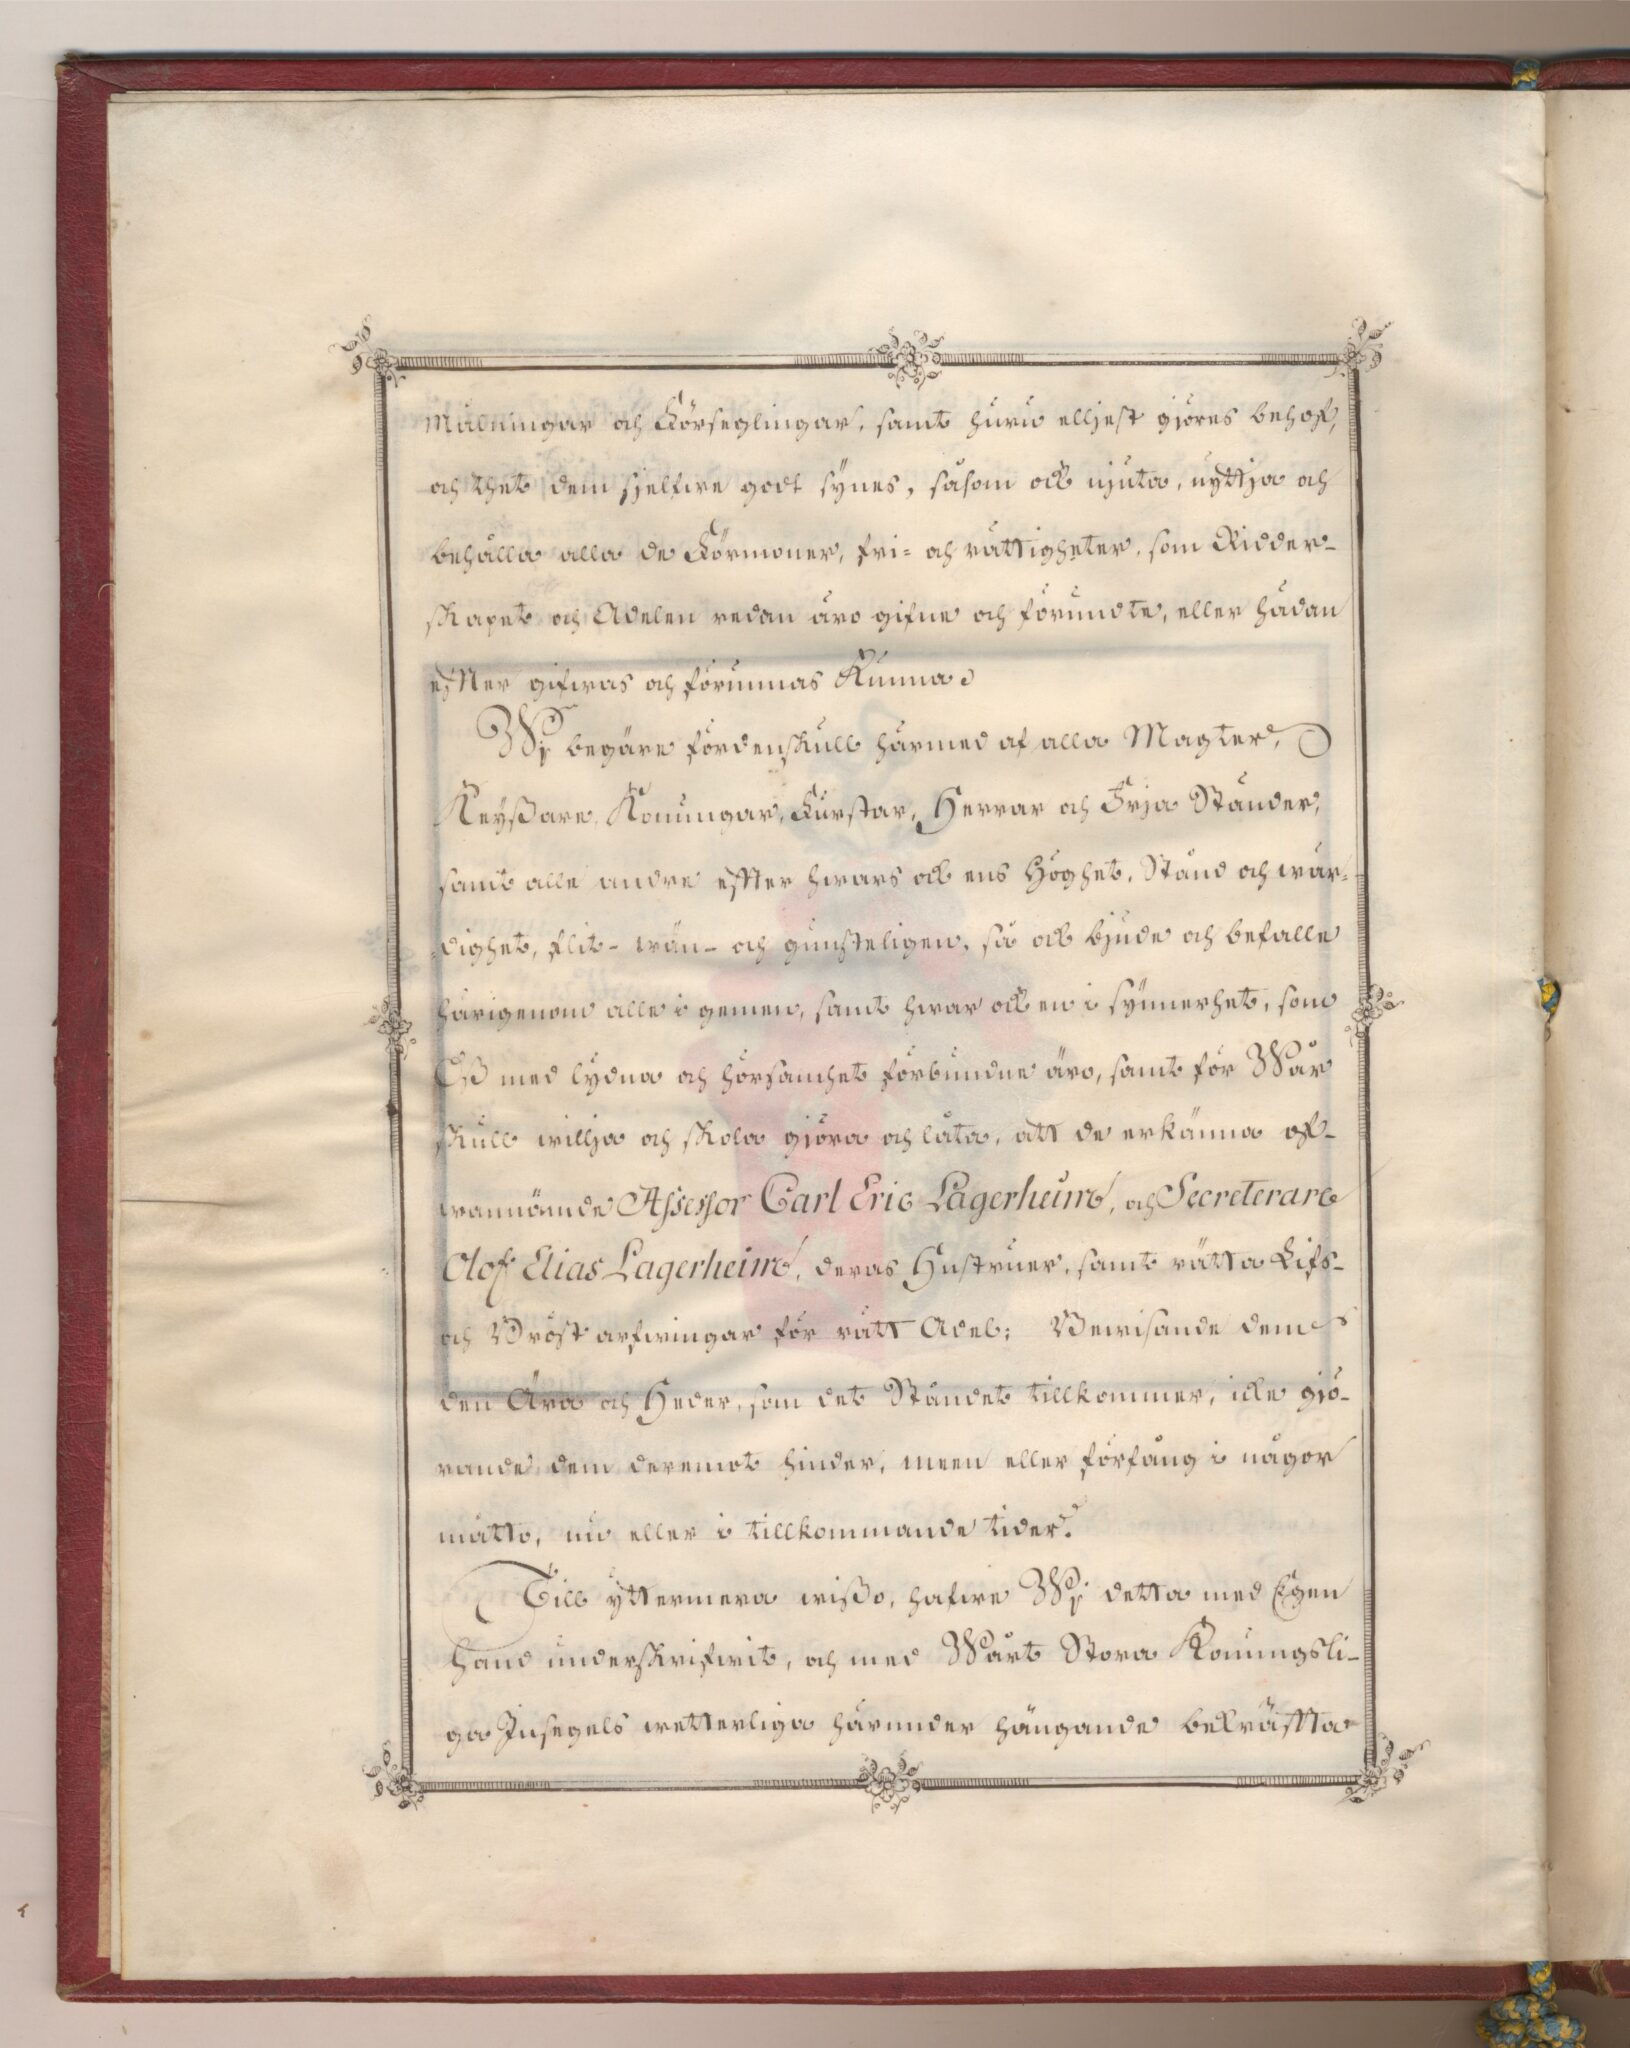 målningar och Förseglingar, samt huru elljest gjöres behof,
och thet dem sjelfwe godt synes, såsom ock njuta, nyttja och
behålla alla de Förmoner, fri- och rättigheter, som Ridder-
skapet och Adelen redan äro gifne och förundte, eller hädan
effter gifwas och förunnas Kunna.
Wj begäre fördenskull härmed af alla Magter,
Keyßare, Konungar, Furstar, Herrar och Frja Ständer,
samt alle andre effter hwars ock ens Höghet, Stånd och wär-
dighet, flit- wän- och gunsteligen, så ock bjude och befalle
härigenom alle i gemen, samt hwar ock en i synnerhet, som
Oß med lydna och hörsamhet förbundne äro, samt för Wår
skull willja och skola gjöra och låta, att de erkänna of-
wannämde Assessor Carl Eric Lagerheim, och Secreterare
Olof Elias Lagerheim, deras Hustruer, samt rätta Lifs-
och Bröst arfwingar för rätt Adel; Bewisande dem
den Ära och Heder, som det Ståndet tillkommer, icke gjö-
rande dem deremot hinder, meen eller förfång i någor
måtto, nu eller i tillkommande tider.
Till yttermera wißo, hafwe Wj detta med Egen
hand underskrifwit, och med Wårt Stora Konungsli-
ga Insegels wetterliga härunder hängande bekräffta